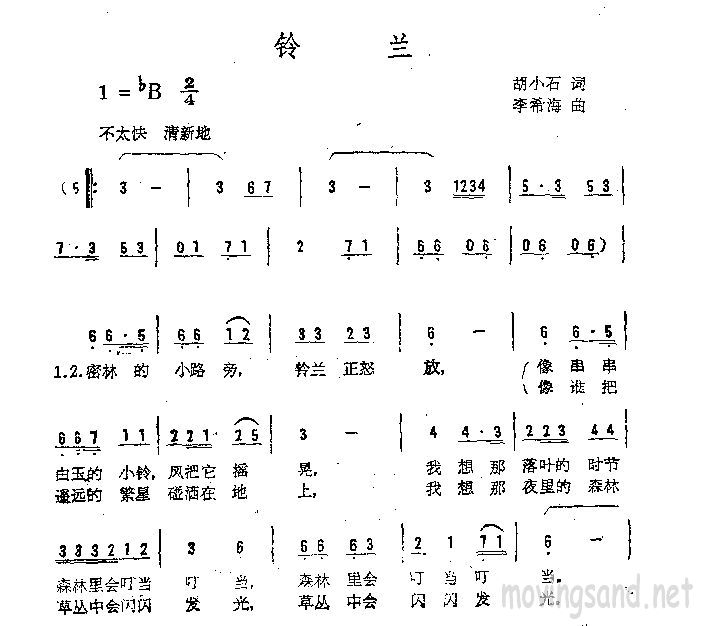 铃 兰
1 = ♭B 2/4
胡小石 词
李希海 曲
不太快 清新地
(5 ‖: 3 — | 3 6 7 | 3 — | 3 1234 | 5 · 3 5 3 |
7 · 3 5 3 | 0 1 7 1 | 2 7 1 | 6 6 0 6 | 0 6 0 6) |
6 6 · 5 | 6 6 1 2 | 3 3 2 3 | 6 — | 6 6 · 5 |
1.2.密林 的 小路 旁, 铃兰 正怒 放, (像 串 串
(像 谁 把
6 6 7 1 1 | 2 2 1 · 2 5 | 3 — | 4 4 · 3 | 2 2 3 4 4 |
白玉的 小铃,风把它 摇 晃, 我 想 那 落叶的 时节
遥远的 繁星 碰洒在 地 上, 我 想 那 夜里的 森林
3 3 3 2 1 2 | 3 6 | 6 6 6 3 | 2 1 7 1 | 6 — |
森林里会叮当 叮 当, 森林 里会 叮 当 叮 当。
草丛中会闪闪 发 光, 草丛 中会 闪 闪 发 光。
movingsand.net